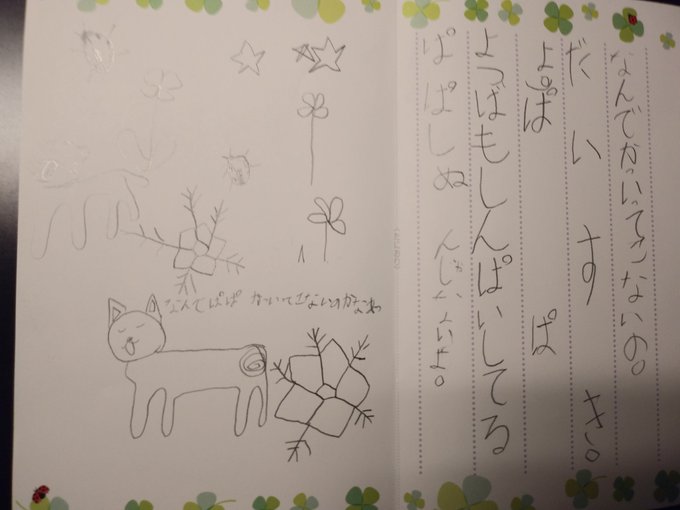 なんでかいてこないの。
だいすき。
よぱ ぱ
よつばもしんぱいしてる
ぱぱしぬんじゃないよ。
なんでぱぱ かいてこないのかなわ